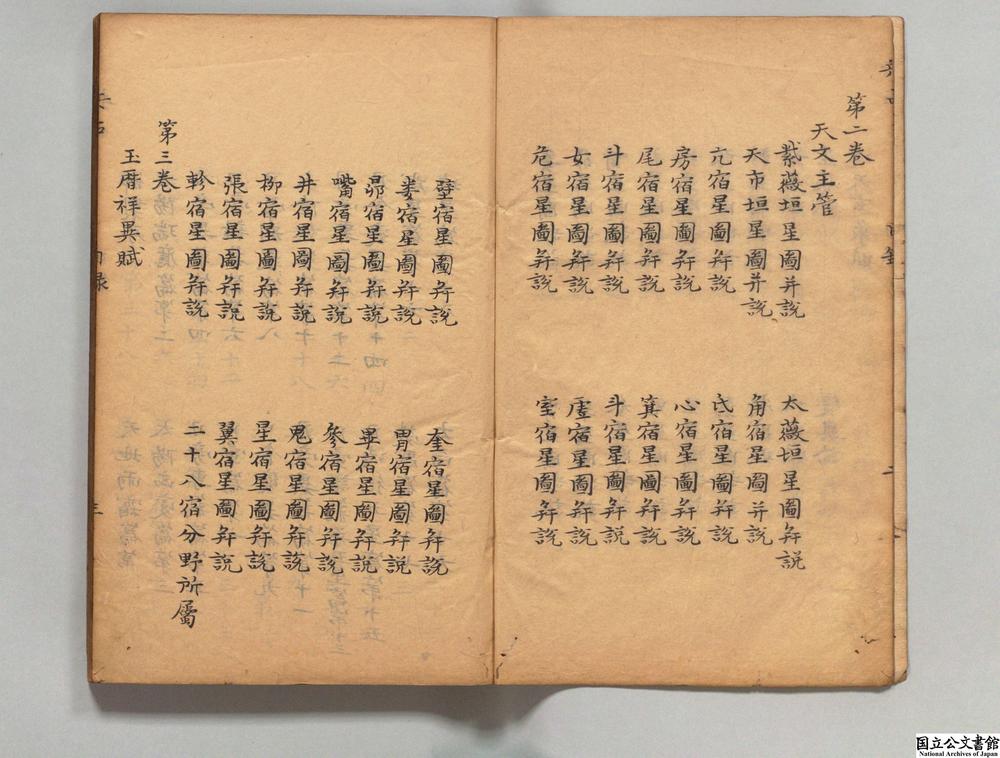 第二卷
天文主管
紫薇垣星圖并說
太薇垣星圖并說
天市垣星圖并說
角宿星圖并說
亢宿星圖并說
氐宿星圖并說
房宿星圖并說
心宿星圖并說
尾宿星圖并說
箕宿星圖并說
斗宿星圖并說
斗宿星圖并說
女宿星圖并說
虛宿星圖并說
危宿星圖并說
室宿星圖并說
壁宿星圖并說
奎宿星圖并說
婁宿星圖并說
胃宿星圖并說
昴宿星圖并說
畢宿星圖并說
嘴宿星圖并說
參宿星圖并說
井宿星圖并說
鬼宿星圖并說
柳宿星圖并說
星宿星圖并說
張宿星圖并說
翼宿星圖并說
軫宿星圖并說
二十八宿分野所屬
第三卷
玉暦祥異賦
国立公文書館
National Archives of Japan